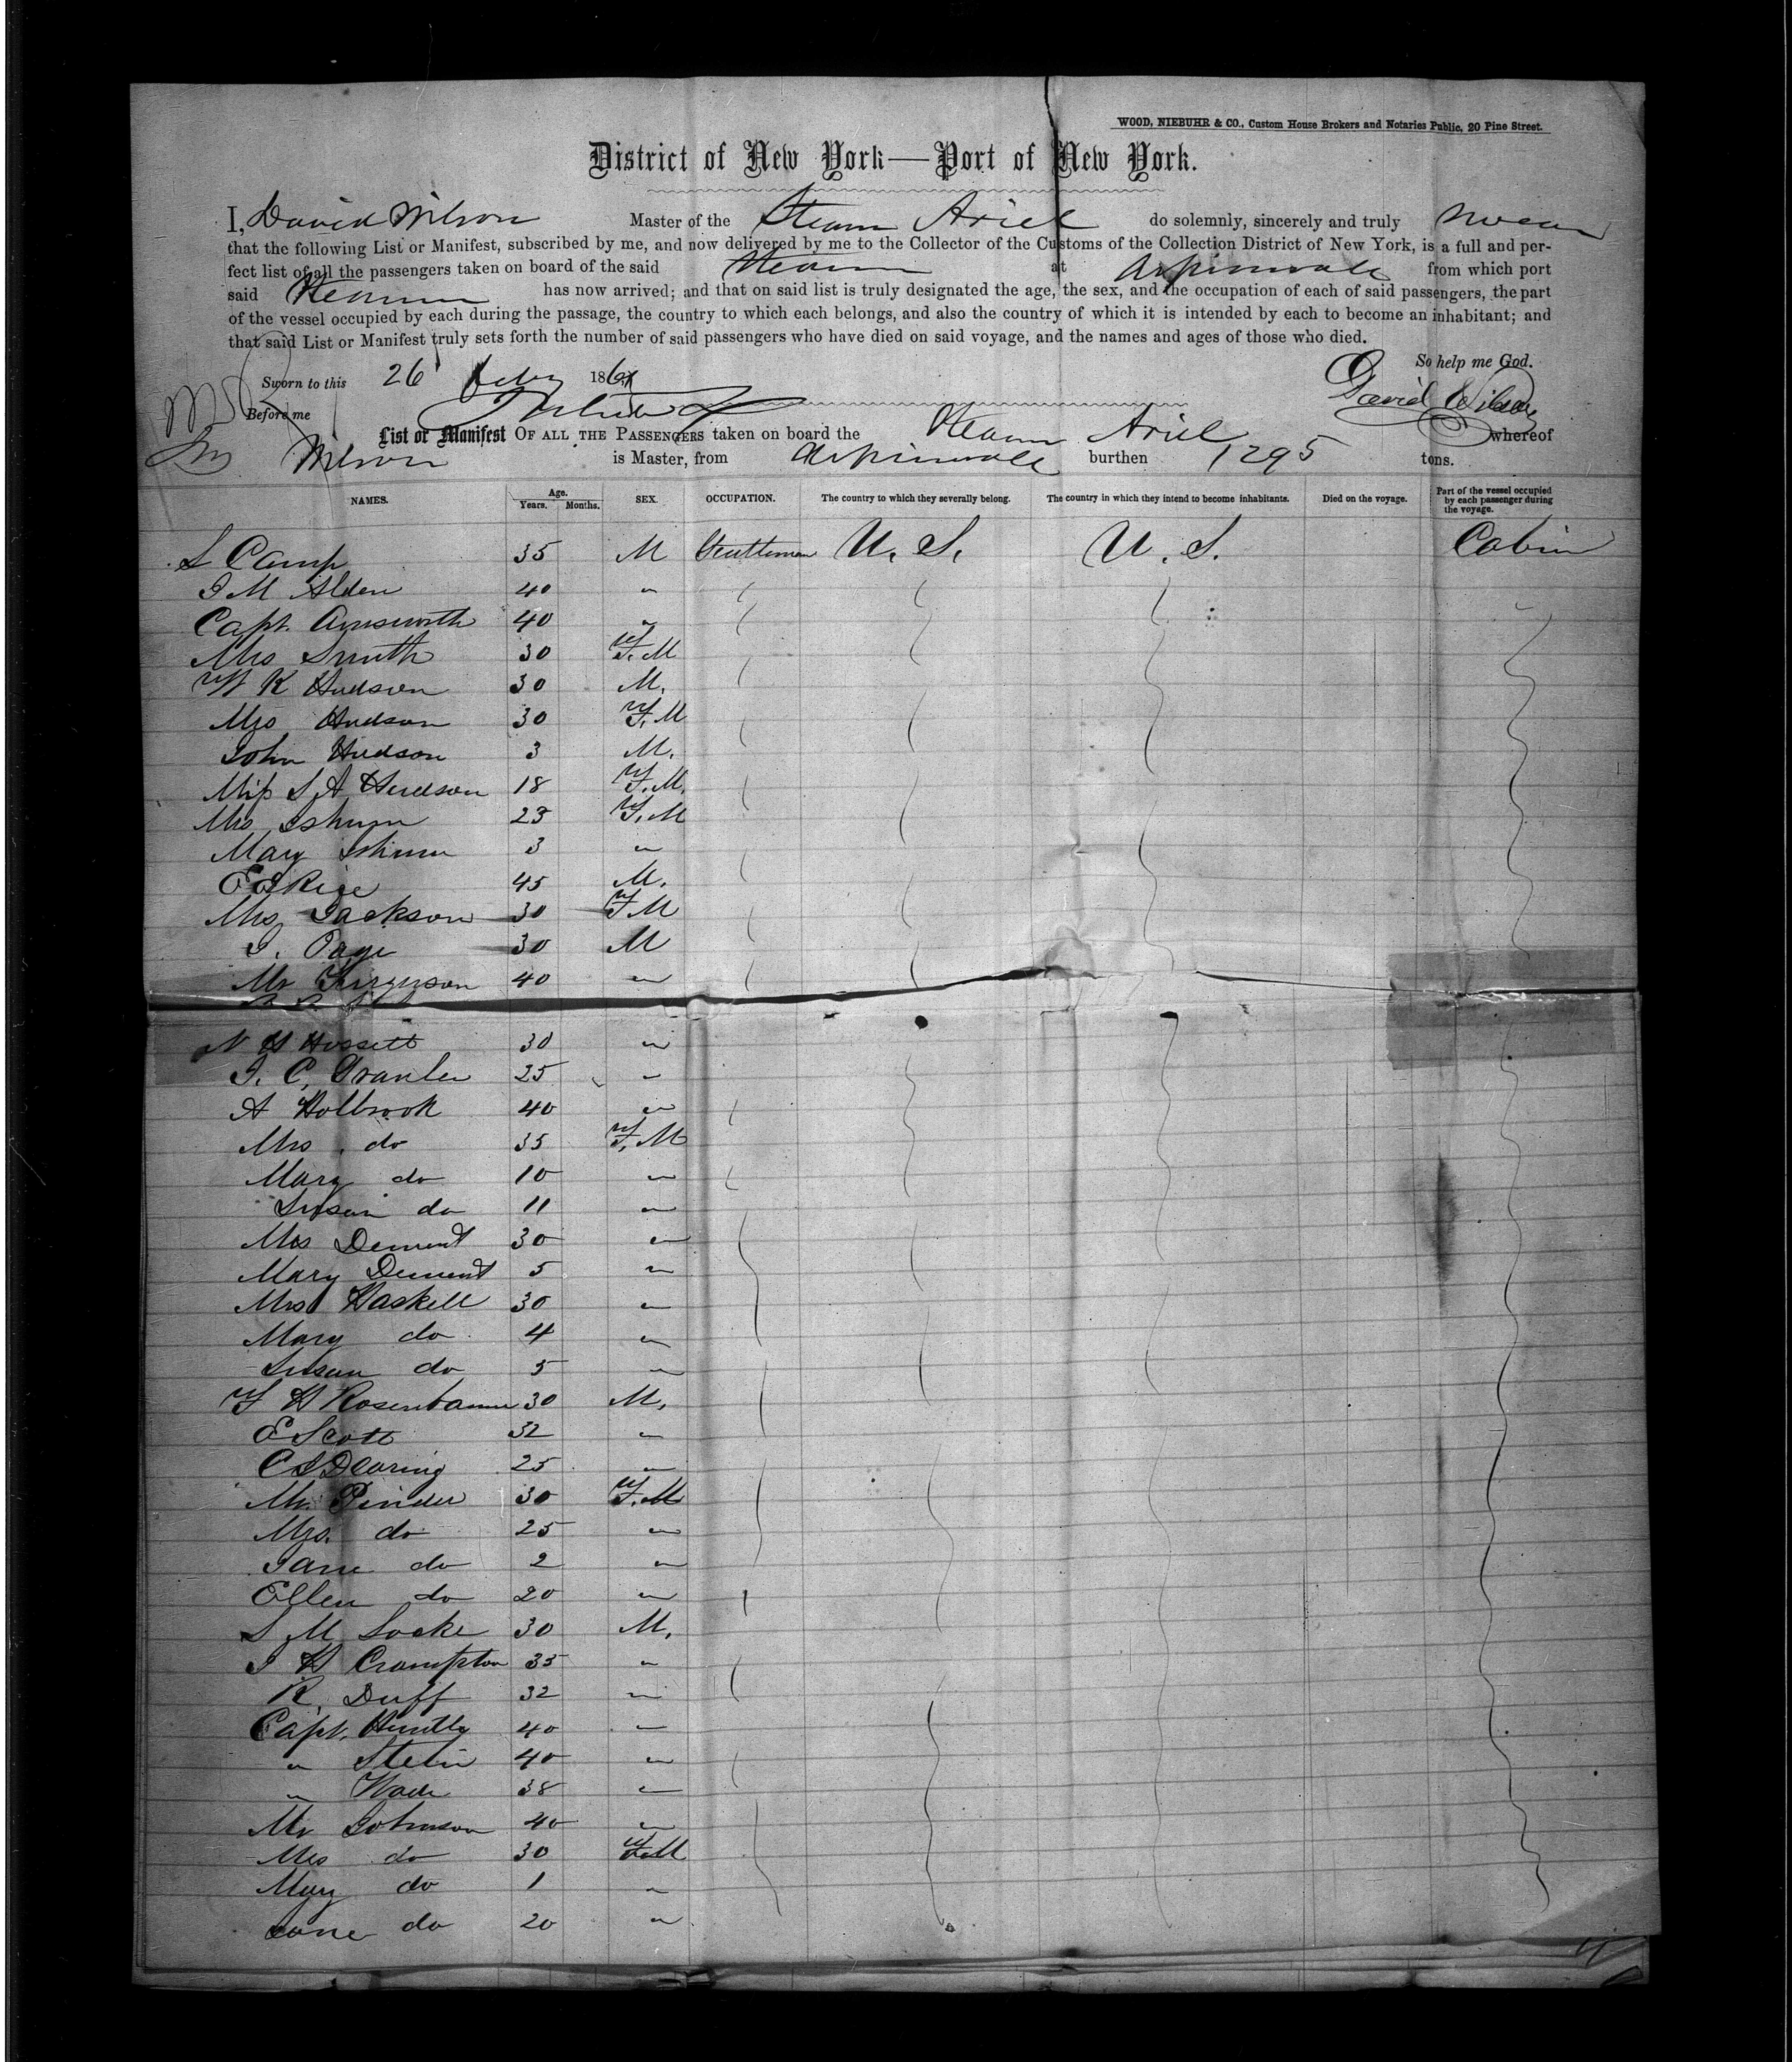 WOOD, NIEBUHR & CO., Custom House Brokers and Notaries Public, 20 Pine Street.
District of New York—Port of New York.
I, David Wilson Master of the Steam Ariel do solemnly, sincerely and truly swear
that the following List or Manifest, subscribed by me, and now delivered by me to the Collector of the Customs of the Collection District of New York, is a full and per-
fect list of all the passengers taken on board of the said Steam at Aspinwall from which port
said Steam has now arrived; and that on said list is truly designated the age, the sex, and the occupation of each of said passengers, the part
of the vessel occupied by each during the passage, the country to which each belongs, and also the country of which it is intended by each to become an inhabitant; and
that said List or Manifest truly sets forth the number of said passengers who have died on said voyage, and the names and ages of those who died.
So help me God.
Sworn to this 26 Feby 1861
David Wilson
Before me
List or Manifest OF ALL THE PASSENGERS taken on board the Steam Ariel whereof
Wilson is Master, from Aspinwall burthen 1295 tons.
NAMES. Age. Years. Months. SEX. OCCUPATION. The country to which they severally belong. The country in which they intend to become inhabitants. Died on the voyage. Part of the vessel occupied by each passenger during the voyage.
S Camp 35 M Gentleman U. S. U. S. Cabin
J M Alden 40 "
Capt. Ainsworth 40 "
Mrs Smith 30 F. M
W K Hudson 30 M.
Mrs Hudson 30 F. M
John Hudson 3 M.
Miss S A Hudson 18 F. M.
Mrs Ishum 23 F. M
Mary Ishum 3 "
E S Rice 45 M.
Mrs Jackson 30 F M
J. Page 30 M
Mr Ferguson 40 "
N H Hossett 30 "
J. C. 25 "
A Holbrook 40 "
Mrs. do 35 F. M
Mary do 10 "
Susan do 11 "
Mrs Dement 30 "
Mary Dement 5 "
Mrs Haskell 30 "
Mary do 4 "
Susan do 5 "
F H Rosenbaum 30 M.
E Scott 32 "
C S Dearing 25 "
Mr. Pinder 30 F. M
Mrs. do 25 "
Jane do 2 "
Ellen do 20 "
S M Locke 30 M.
J H Crampton 35 "
R. Duff 32 "
Capt. Huntly 40 "
" Stein 40 "
" Wade 38 "
Mr Johnson 40 "
Mrs do 30 F. M
Mary do 1 "
Jane do 20 "